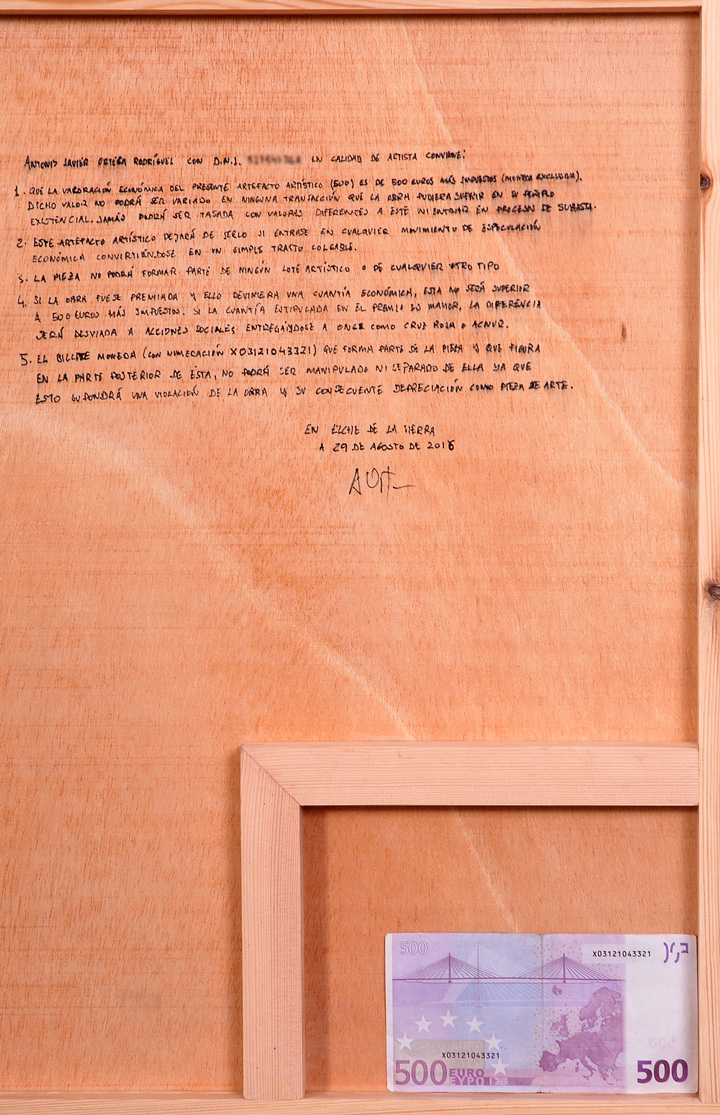 ANTONIO JAVIER ORTEGA RODRÍGUEZ CON D.N.I. EN CALIDAD DE ARTISTA CONVIENE:
1. QUE LA VALORACIÓN ECONÓMICA DEL PRESENTE ARTEFACTO ARTÍSTICO ES DE 500 EUROS MÁS IMPUESTOS (MONEDA EXCLUIDA).
DICHO VALOR NO PODRÁ SER VARIADO EN NINGUNA TRANSACCIÓN QUE LA OBRA PUDIERA SUFRIR EN SU PERIPLO
EXISTENCIAL. JAMÁS PODRÁ SER TASADA CON VALORES DIFERENTES A ESTE NI ENTRAR EN PROCESOS DE SUBASTA.
2. ESTE ARTEFACTO ARTÍSTICO DEJARÁ DE SERLO SI ENTRASE EN CUALQUIER MOVIMIENTO DE ESPECULACIÓN
ECONÓMICA CONVIRTIÉNDOSE EN UN SIMPLE TRASTO COLGABLE.
3. LA PIEZA NO PODRÁ FORMAR PARTE DE NINGÚN LOTE ARTÍSTICO O DE CUALQUIER OTRO TIPO
4. SI LA OBRA FUESE PREMIADA Y ELLO DEVINIERA UNA CUANTÍA ECONÓMICA, ESTA NO SERÁ SUPERIOR
A 500 EUROS MÁS IMPUESTOS. SI LA CUANTÍA ESTIPULADA EN EL PREMIO ES MAYOR, LA DIFERENCIA
SERÁ DESVIADA A ACCIONES SOCIALES ENTREGÁNDOLE A ONGS COMO CRUZ ROJA O ACNUR.
5. EL BILLETE MONEDA (CON NUMERACIÓN X03121043321) QUE FORMA PARTE DE LA PIEZA Y QUE FIGURA
EN LA PARTE POSTERIOR DE ÉSTA, NO PODRÁ SER MANIPULADO NI SEPARADO DE ELLA YA QUE
ESTO SUPONDRÁ UNA VIOLACIÓN DE LA OBRA Y SU CONSECUENTE DEPRECIACIÓN COMO PIEZA DE ARTE.
EN ELCHE DE LA SIERRA
A 29 DE AGOSTO DE 2016
500
X03121043321
X03121043321
500 EURO
ΕΥΡΩ
500